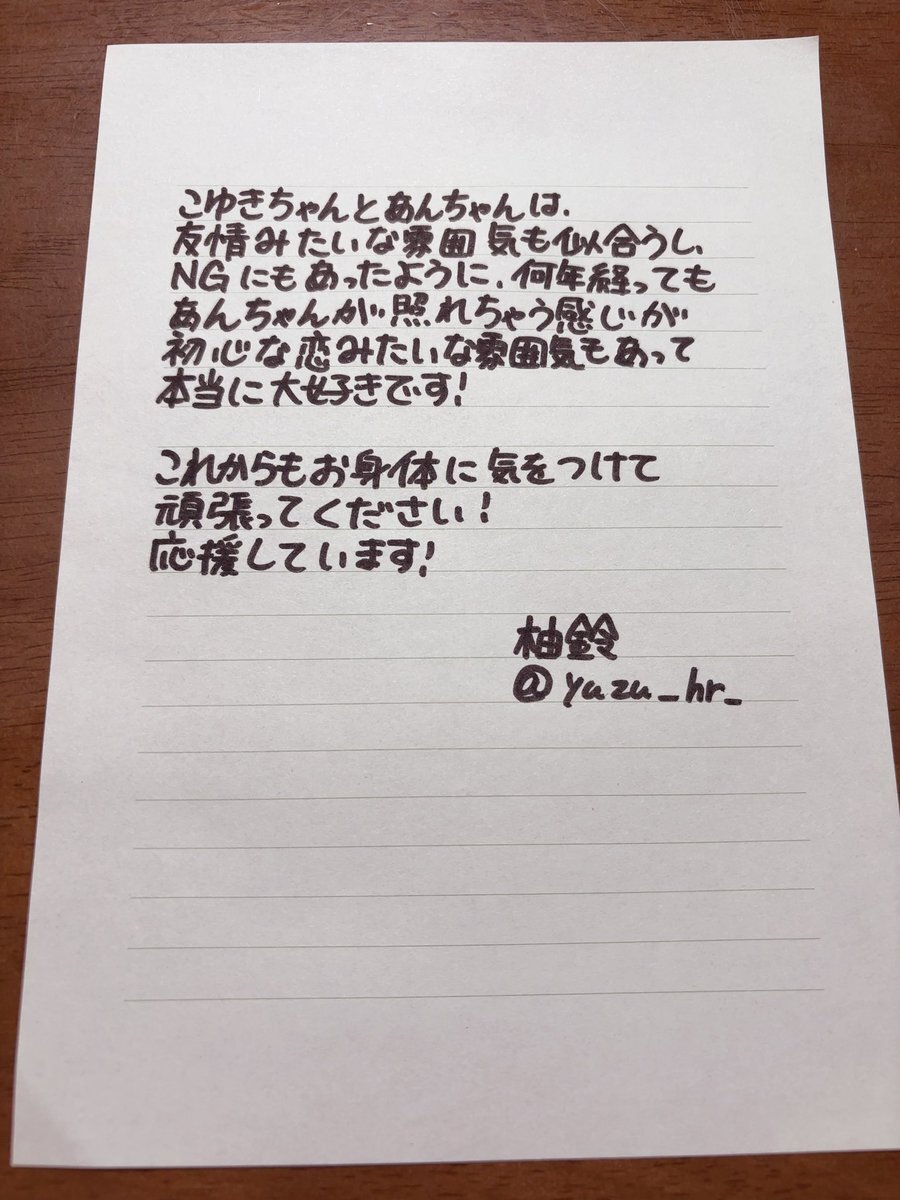 こゆきちゃんとあんちゃんは、
友情みたいな雰囲気も似合うし、
NGにもあったように、何年経っても
あんちゃんが照れちゃう感じが
初心な恋みたいな雰囲気もあって
本当に大好きです!
これからもお身体に気をつけて
頑張ってください!
応援しています!
柚鈴
@yuzu_hr_